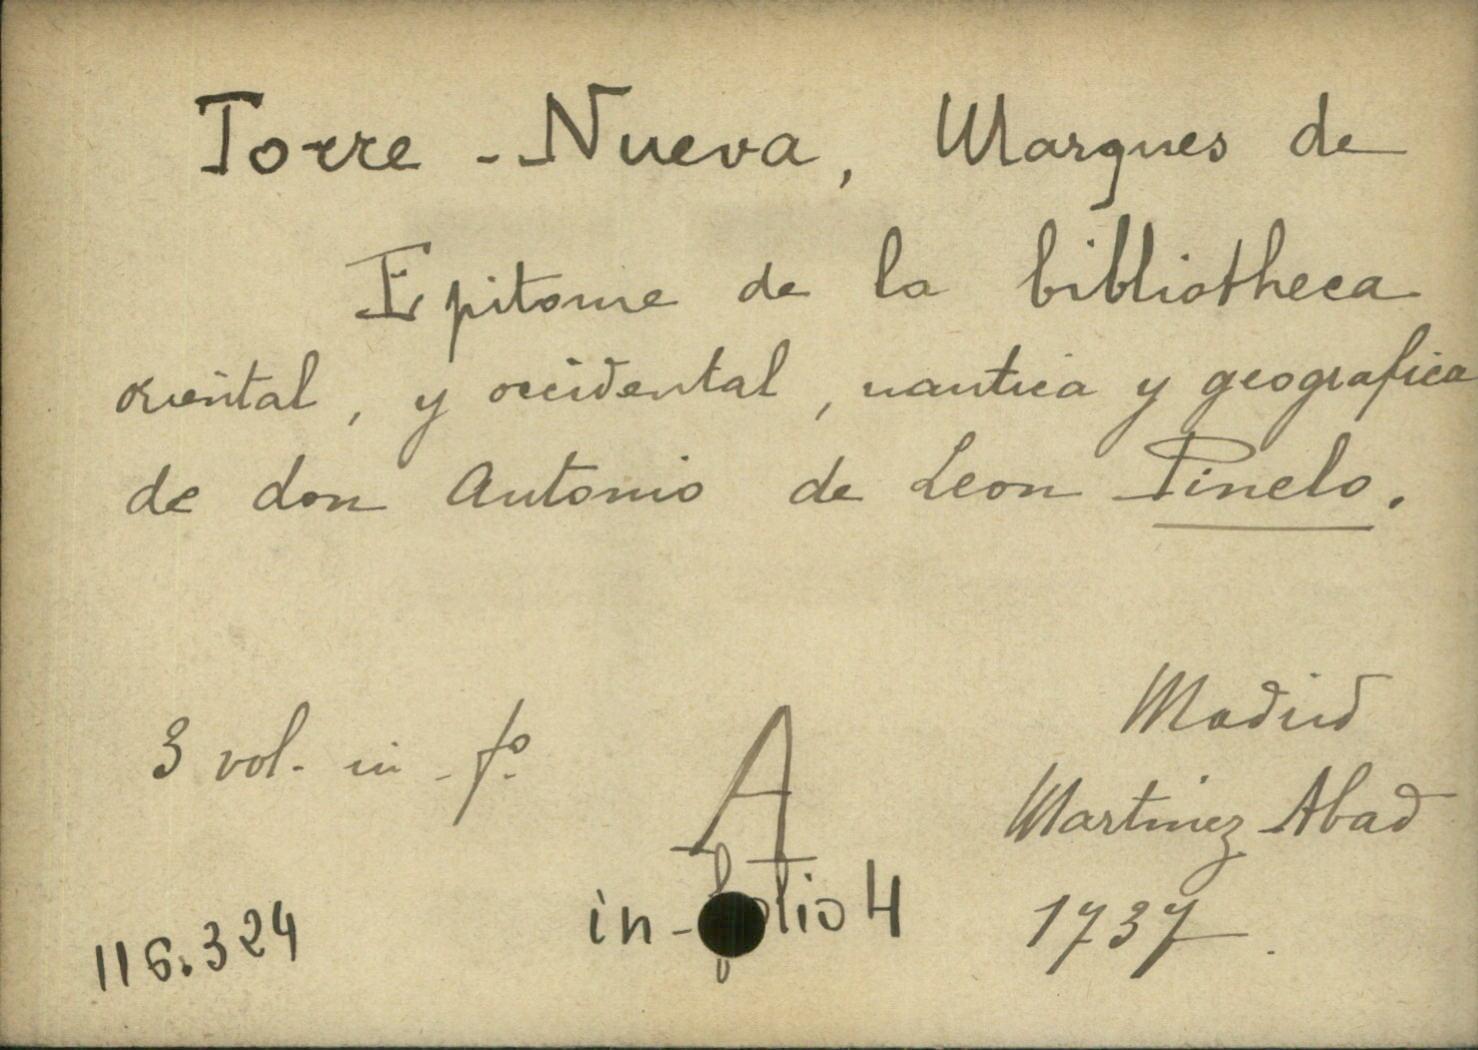 Torre-Nueva, Marques de
Epitome de la bibliotheca
oriental, y occidental, nautica y geografica
de don Antonio de Leon Pinelo.
3 vol. in-fº.
A
in-folio 4
116.324
Madrid
Martinez Abad
1737.